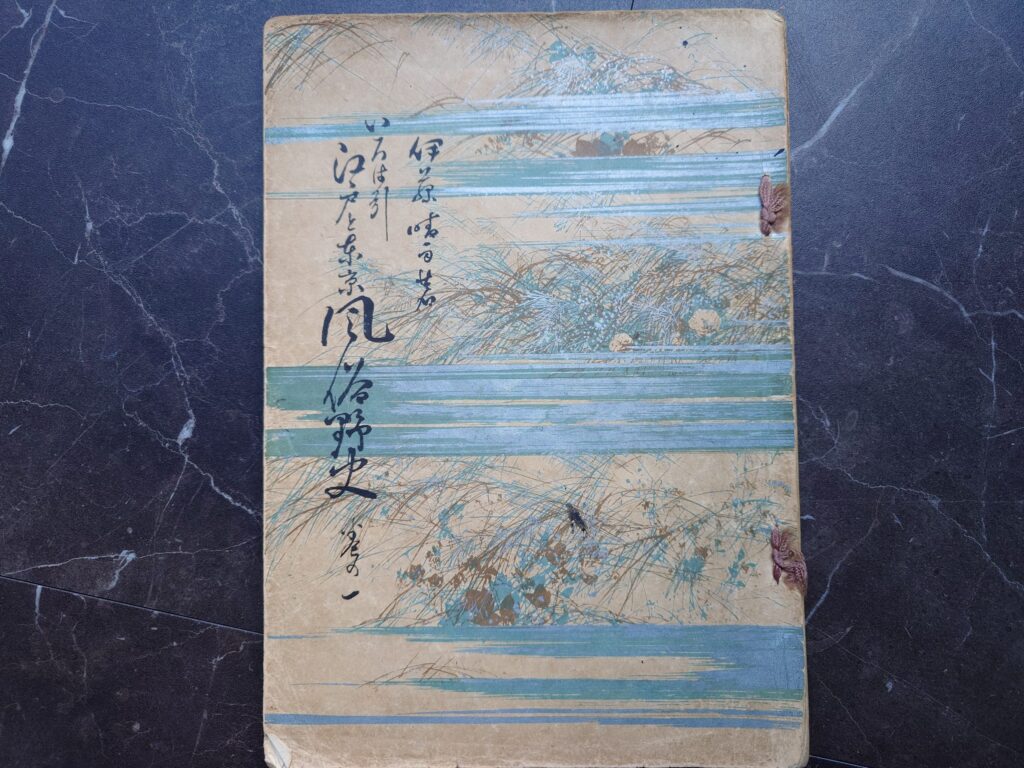 伊藤晴雨著
いろは引
江戸と東京風俗野史
巻の一